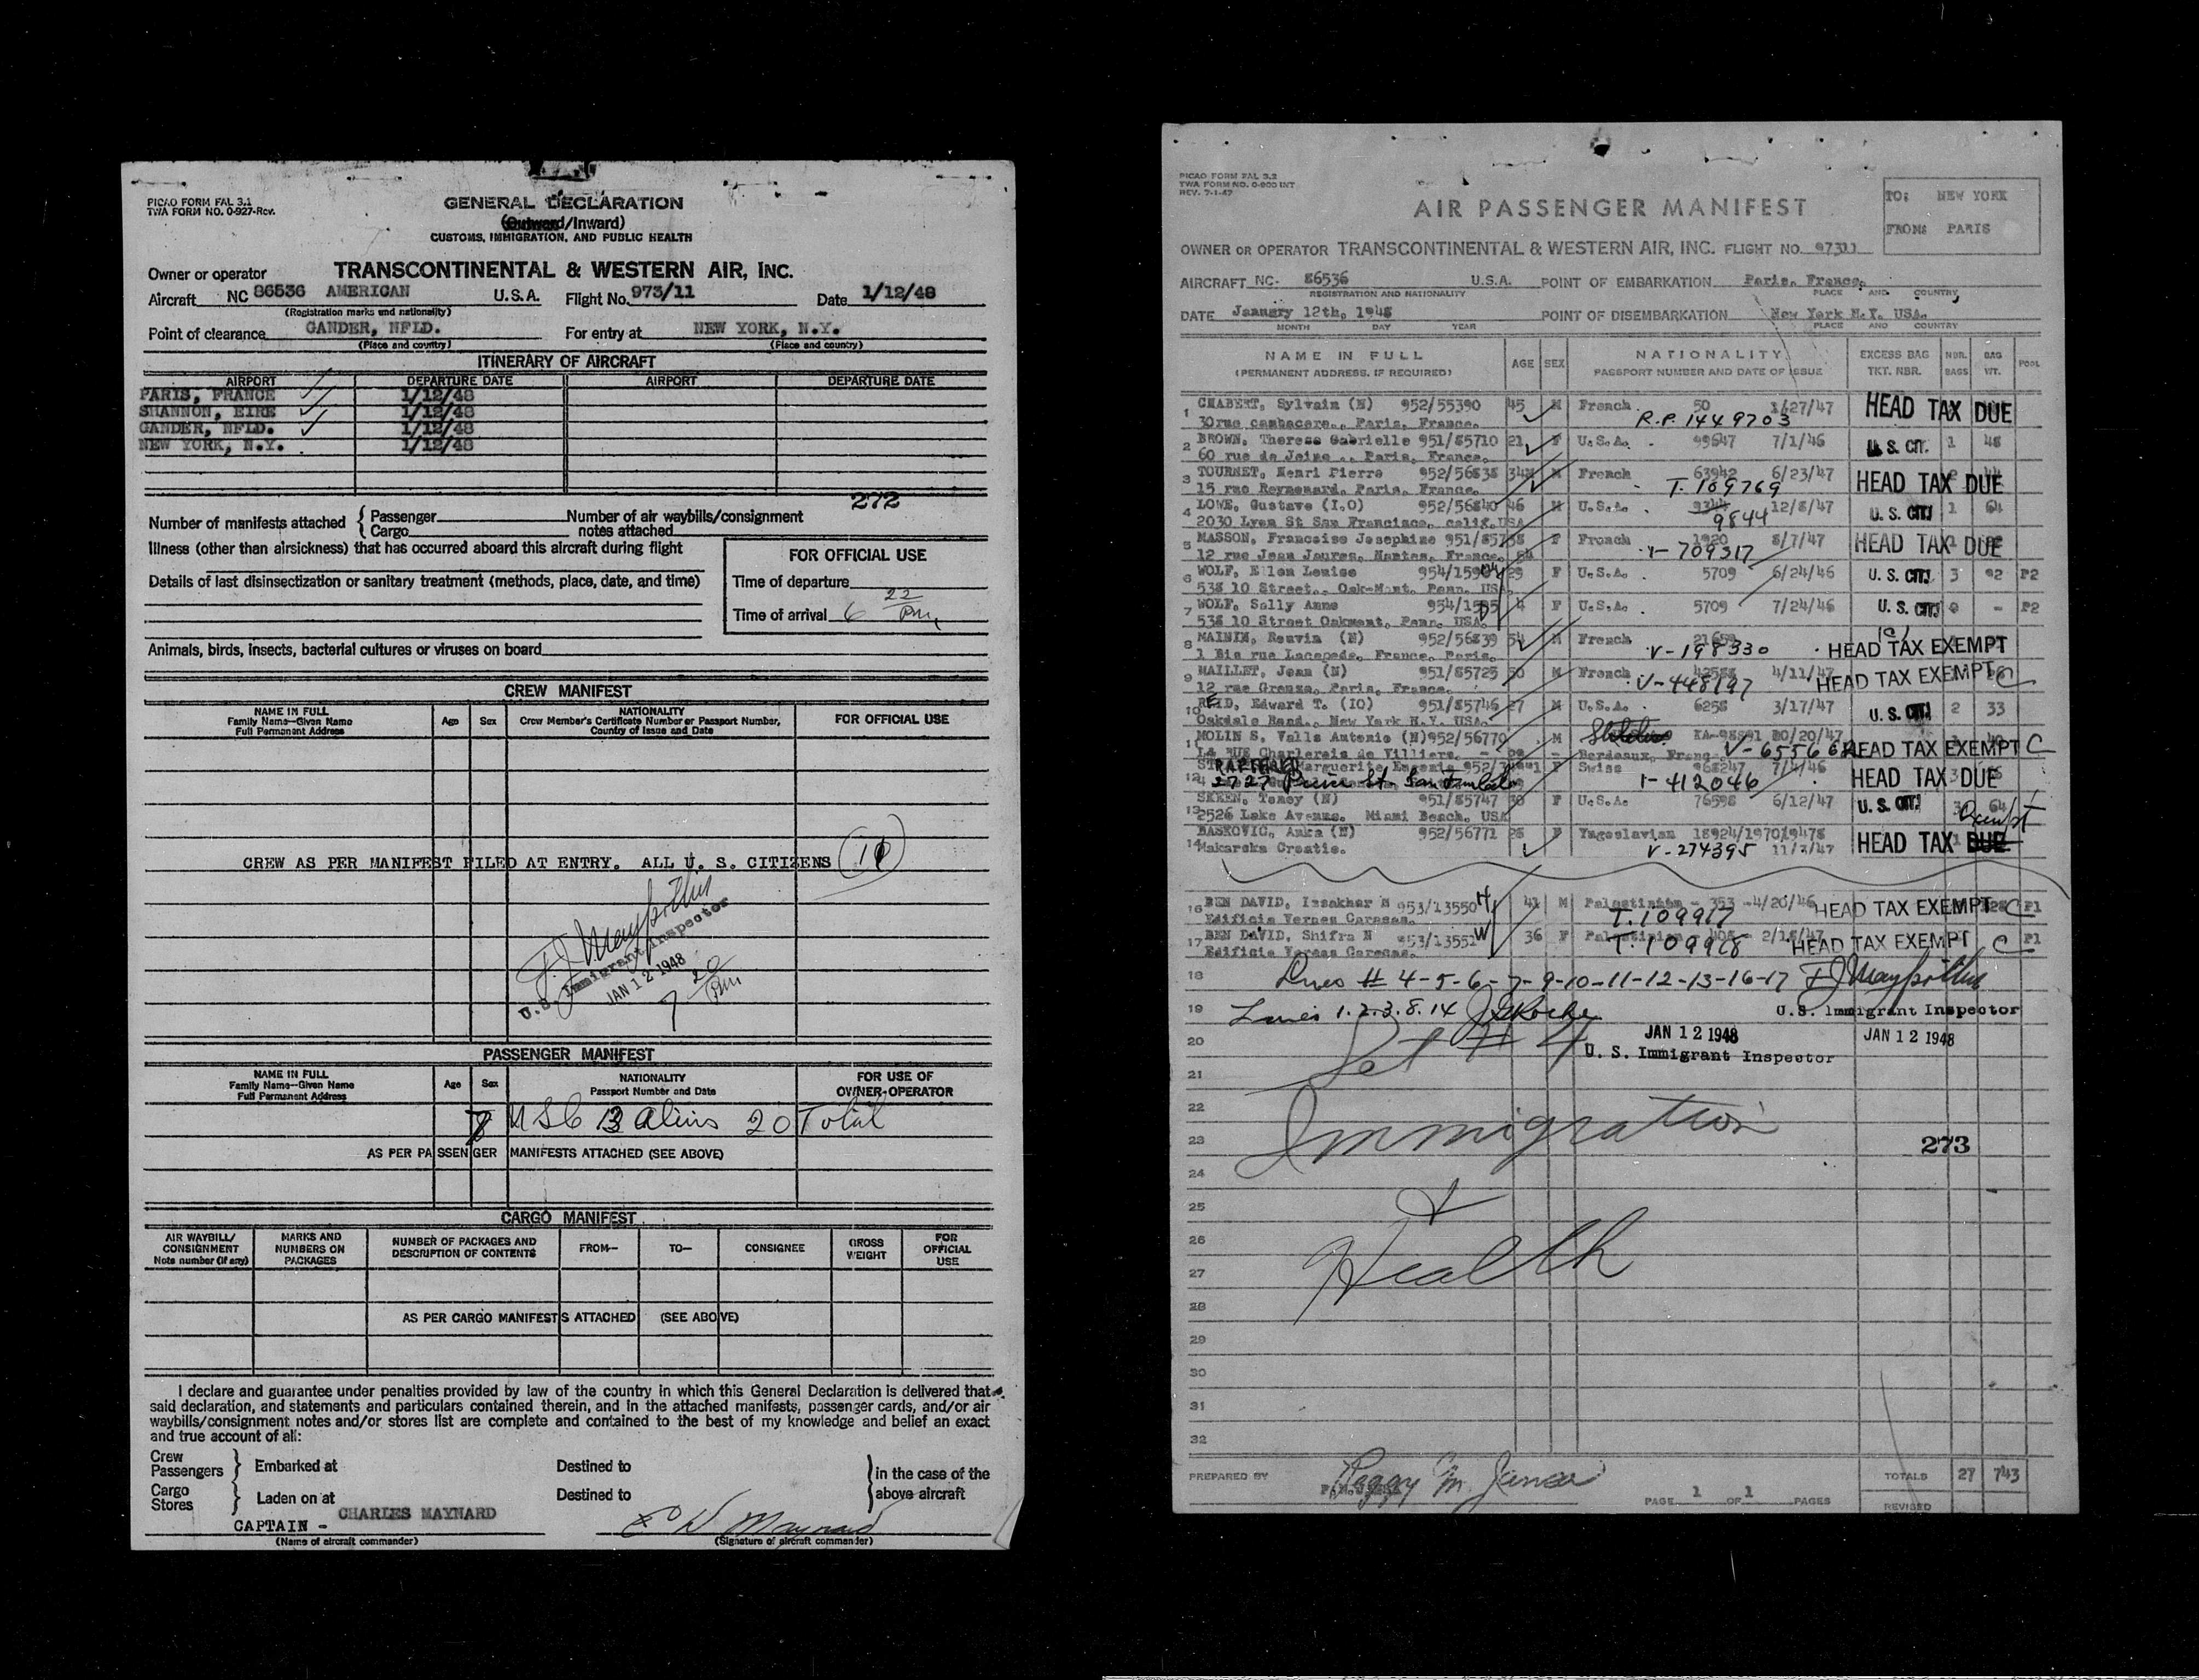 PICAO FORM FAL 3.1
TWA FORM NO. 0-927-Rev.
GENERAL DECLARATION
(Outward/Inward)
CUSTOMS, IMMIGRATION, AND PUBLIC HEALTH
Owner or operator TRANSCONTINENTAL & WESTERN AIR, INC.
Aircraft NC 86536 AMERICAN U.S.A. Flight No. 973/11 Date 1/12/48
(Registration marks and nationality)
Point of clearance GANDER, NFLD. For entry at NEW YORK, N.Y.
(Place and country) (Place and country)
ITINERARY OF AIRCRAFT
AIRPORT DEPARTURE DATE AIRPORT DEPARTURE DATE
PARIS, FRANCE 1/12/48
SHANNON, EIRE 1/12/48
GANDER, NFLD. 1/12/48
NEW YORK, N.Y. 1/12/48
272
Number of manifests attached { Passenger Number of air waybills/consignment
Cargo notes attached
Illness (other than airsickness) that has occurred aboard this aircraft during flight
Details of last disinsectization or sanitary treatment (methods, place, date, and time)
FOR OFFICIAL USE
Time of departure
Time of arrival 6 22 PM
Animals, birds, insects, bacterial cultures or viruses on board
CREW MANIFEST
NAME IN FULL
Family Name—Given Name
Full Permanent Address
Age Sex
NATIONALITY
Crew Member's Certificate Number or Passport Number,
Country of Issue and Date
FOR OFFICIAL USE
CREW AS PER MANIFEST FILED AT ENTRY. ALL U. S. CITIZENS
U.S. Immigrant Inspector
JAN 12 1948
7 20 PM
PASSENGER MANIFEST
NAME IN FULL
Family Name—Given Name
Full Permanent Address
Age Sex
NATIONALITY
Passport Number and Date
FOR USE OF
OWNER-OPERATOR
7 USC 13 Aliens 20 Total
AS PER PASSENGER MANIFESTS ATTACHED (SEE ABOVE)
CARGO MANIFEST
AIR WAYBILL/
CONSIGNMENT
Note number (if any)
MARKS AND
NUMBERS ON
PACKAGES
NUMBER OF PACKAGES AND
DESCRIPTION OF CONTENTS
FROM— TO— CONSIGNEE
GROSS
WEIGHT
FOR
OFFICIAL
USE
AS PER CARGO MANIFESTS ATTACHED (SEE ABOVE)
I declare and guarantee under penalties provided by law of the country in which this General Declaration is delivered that
said declaration, and statements and particulars contained therein, and in the attached manifests, passenger cards, and/or air
waybills/consignment notes and/or stores list are complete and contained to the best of my knowledge and belief an exact
and true account of all:
Crew
Passengers } Embarked at Destined to
Cargo
Stores } Laden on at Destined to
} in the case of the
above aircraft
CAPTAIN - CHARLES MAYNARD
(Name of aircraft commander) (Signature of aircraft commander)
PICAO FORM FAL 3.2
TWA FORM NO. 0-900 INT
REV. 7-1-47
AIR PASSENGER MANIFEST
TO: NEW YORK
FROM: PARIS
OWNER OR OPERATOR TRANSCONTINENTAL & WESTERN AIR, INC. FLIGHT NO. 97311
AIRCRAFT NC- 86536 U.S.A. POINT OF EMBARKATION Paris, France.
REGISTRATION AND NATIONALITY PLACE AND COUNTRY
DATE January 12th, 1948 POINT OF DISEMBARKATION New York N.Y. USA.
MONTH DAY YEAR PLACE AND COUNTRY
NAME IN FULL
(PERMANENT ADDRESS, IF REQUIRED)
AGE SEX
NATIONALITY
PASSPORT NUMBER AND DATE OF ISSUE
EXCESS BAG
TKT. NBR.
NBR.
BAGS
BAG
WT.
POOL
1 CHABERT, Sylvain (N) 952/55390 45 M French 50 1/27/47 HEAD TAX DUE
30rue cambacere., Paris, France. R.P. 1449703
2 BROWN, Therese Gabrielle 951/85710 21 F U.S.A. 99647 7/1/46 U.S. CIT. 1 48
60 rue de Seine .. Paris, France.
3 TOURNET, Henri Pierre 952/56838 34 M French 63942 6/23/47 HEAD TAX DUE
15 rue Reynouard, Paris, France. T. 109769
4 LOWE, Gustave (I.O) 952/56840 46 M U.S.A. 9844 12/8/47 U. S. CIT. 1 64
2030 Lyon St San Francisco, calif. USA
5 MASSON, Francoise Josephine F French 1920 8/7/47 HEAD TAX DUE
12 rue Jean Jaures, Nantes, France. V-709317
6 WOLF, Ellen Louise 29 F U.S.A. 5709 6/24/46 U. S. CIT. 3 92 P2
538 10 Street., Oak-Mont, Penn. USA.
7 WOLF, Sally Anne 4 F U.S.A. 5709 7/24/46 U. S. CIT. 0 - P2
538 10 Street Oakmont, Penn, USA.
8 MAININ, Reuvin (N) 952/56839 54 M French HEAD TAX EXEMPT
1 Bis rue Lacepede, France, Paris. V-198330
9 MAILLET, Jean (N) 951/85725 50 M French 4/11/47 HEAD TAX EXEMPT C
12 rue Greuze, Paris, France. V-448197
10 REID, Edward T. (IO) 951/85746 27 M U.S.A. 6258 3/17/47 U. S. CIT. 2 33
Oakdale Road., New York N.Y. USA.
11 MOLIN S, Valls Antonio (N) 952/56770 M 10/20/47 HEAD TAX EXEMPT C
12 Marguerite Eugenie F Swiss 7/4/46 HEAD TAX DUE
V-412046
13 SKEEN, Toney (N) 951/85747 30 F U.S.A. 76598 6/12/47 U. S. CIT. 3 64
2526 Lake Avenue. Miami Beach, USA
Exempt
14 BASKOVIC, Anka (N) 952/56771 28 F Yugoslavian HEAD TAX DUE
Makarska Croatie. V-274395 11/3/47
16 BEN DAVID, Issakhar N 953/13550 H 41 M Palestinian - 353 -4/20/46 HEAD TAX EXEMPT C P1
Edificio Vernes Caracas. T.109917
17 BEN DAVID, Shifra N 953/13551 W 36 F Palestinian HEAD TAX EXEMPT C P1
Edificio Vernes Caracas. T.109918
18 Lines # 4-5-6-7-9-10-11-12-13-16-17
19 Lines 1.2.3.8.14 U.S. Immigrant Inspector
20 Set # 4 JAN 12 1948 JAN 12 1948
U. S. Immigrant Inspector
21
22
Immigration
23 273
24
25 &
26
Health
27
28
29
30
31
32
PREPARED BY Peggy M. Jones
TOTALS 27 743
PAGE 1 OF 1 PAGES
REVISED